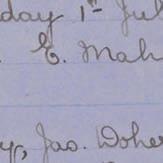 day 1st Jul
. E. Mah
y, Jas. Doher